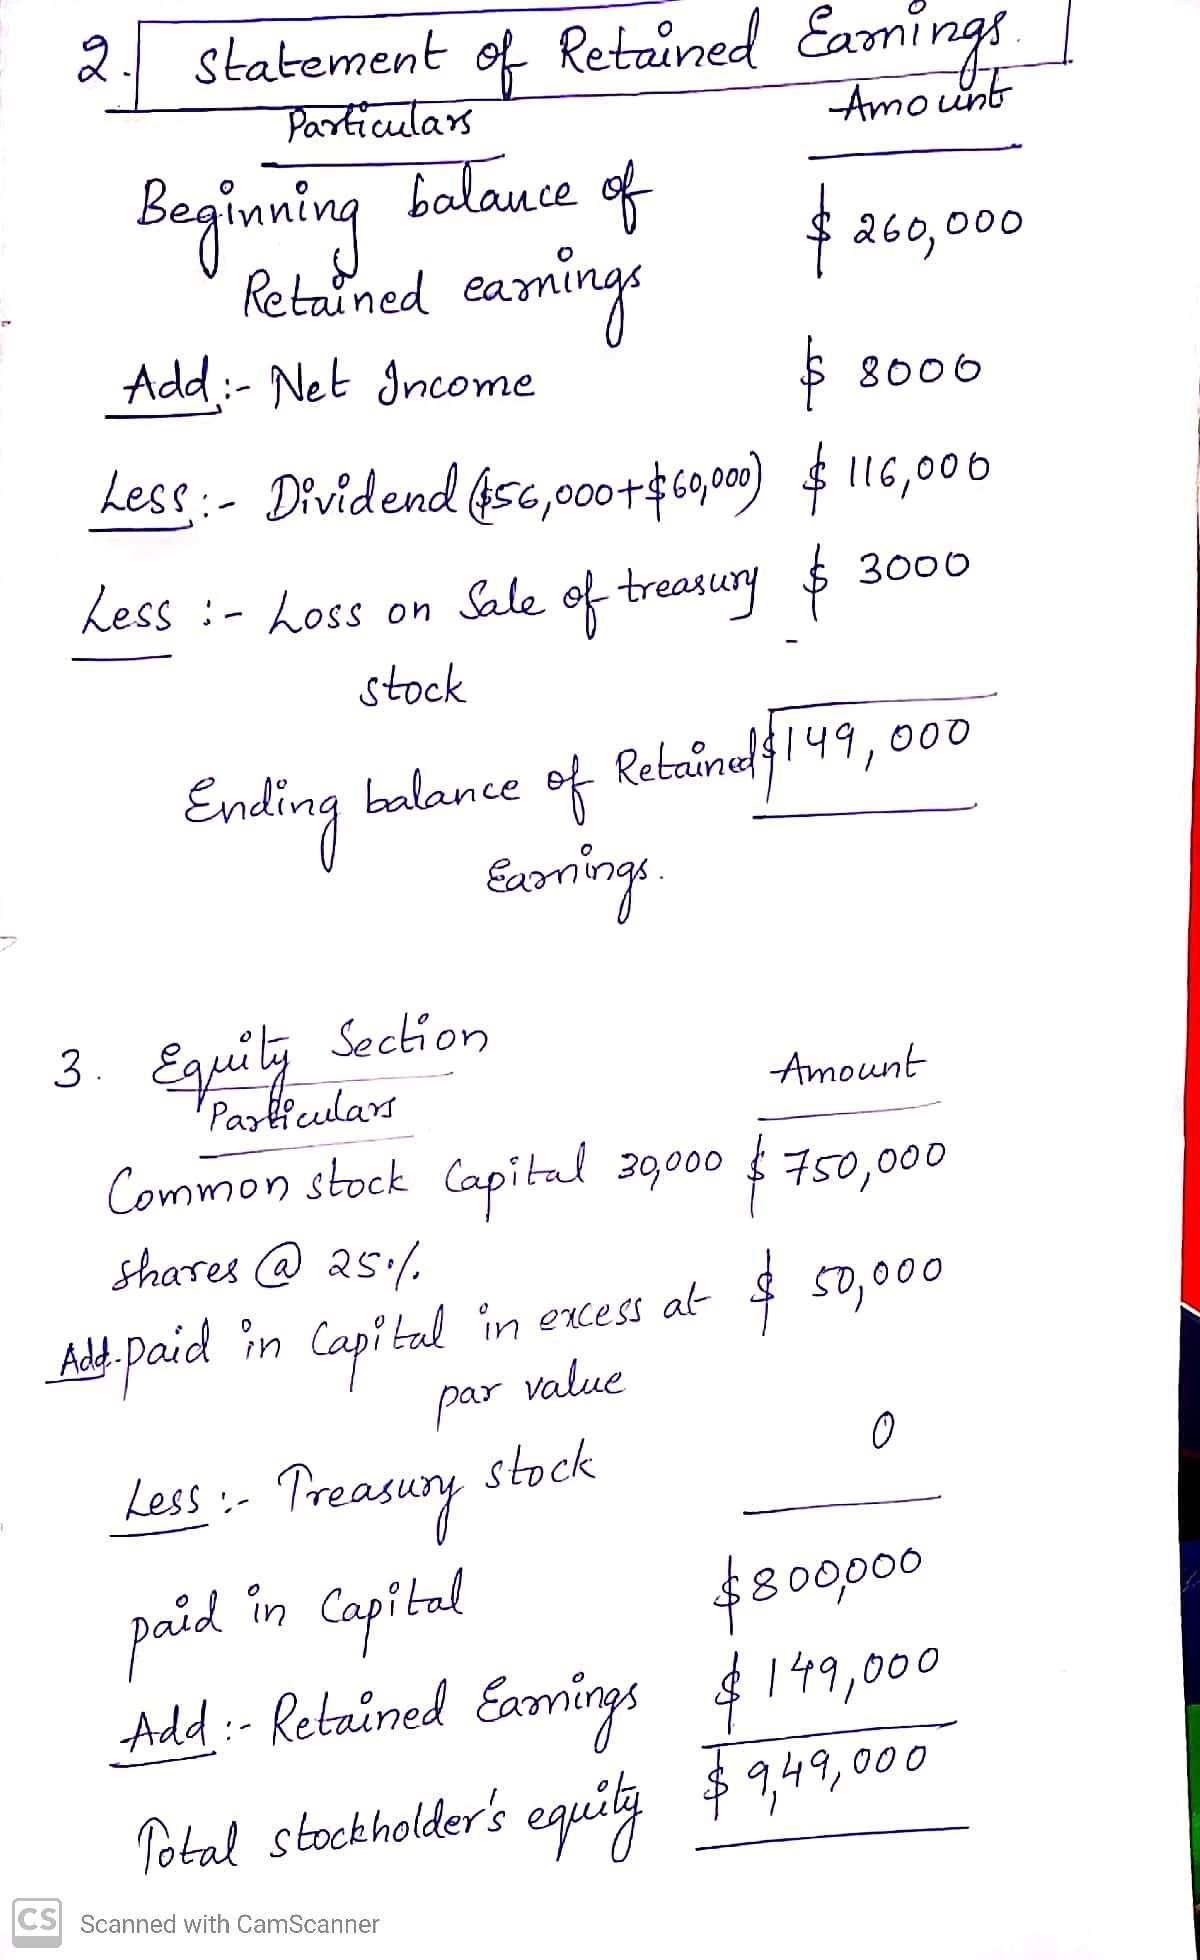 2. Statement of Retained Earnings.
Particulars Amount
Beginning balance of $ 260,000
Retained earnings
Add :- Net Income $ 8000
Less :- Dividend ($56,000+$60,000) $ 116,000
Less :- Loss on Sale of treasury $ 3000
stock
Ending balance of Retained $149,000
Earnings.
3. Equity Section
Particulars Amount
Common stock Capital 30,000 $ 750,000
shares @ 25%.
Add-paid in Capital in excess at $ 50,000
par value
Less :- Treasury stock 0
paid in Capital $800,000
Add :- Retained Earnings $ 149,000
Total stockholder's equity $ 9,49,000
CS Scanned with CamScanner